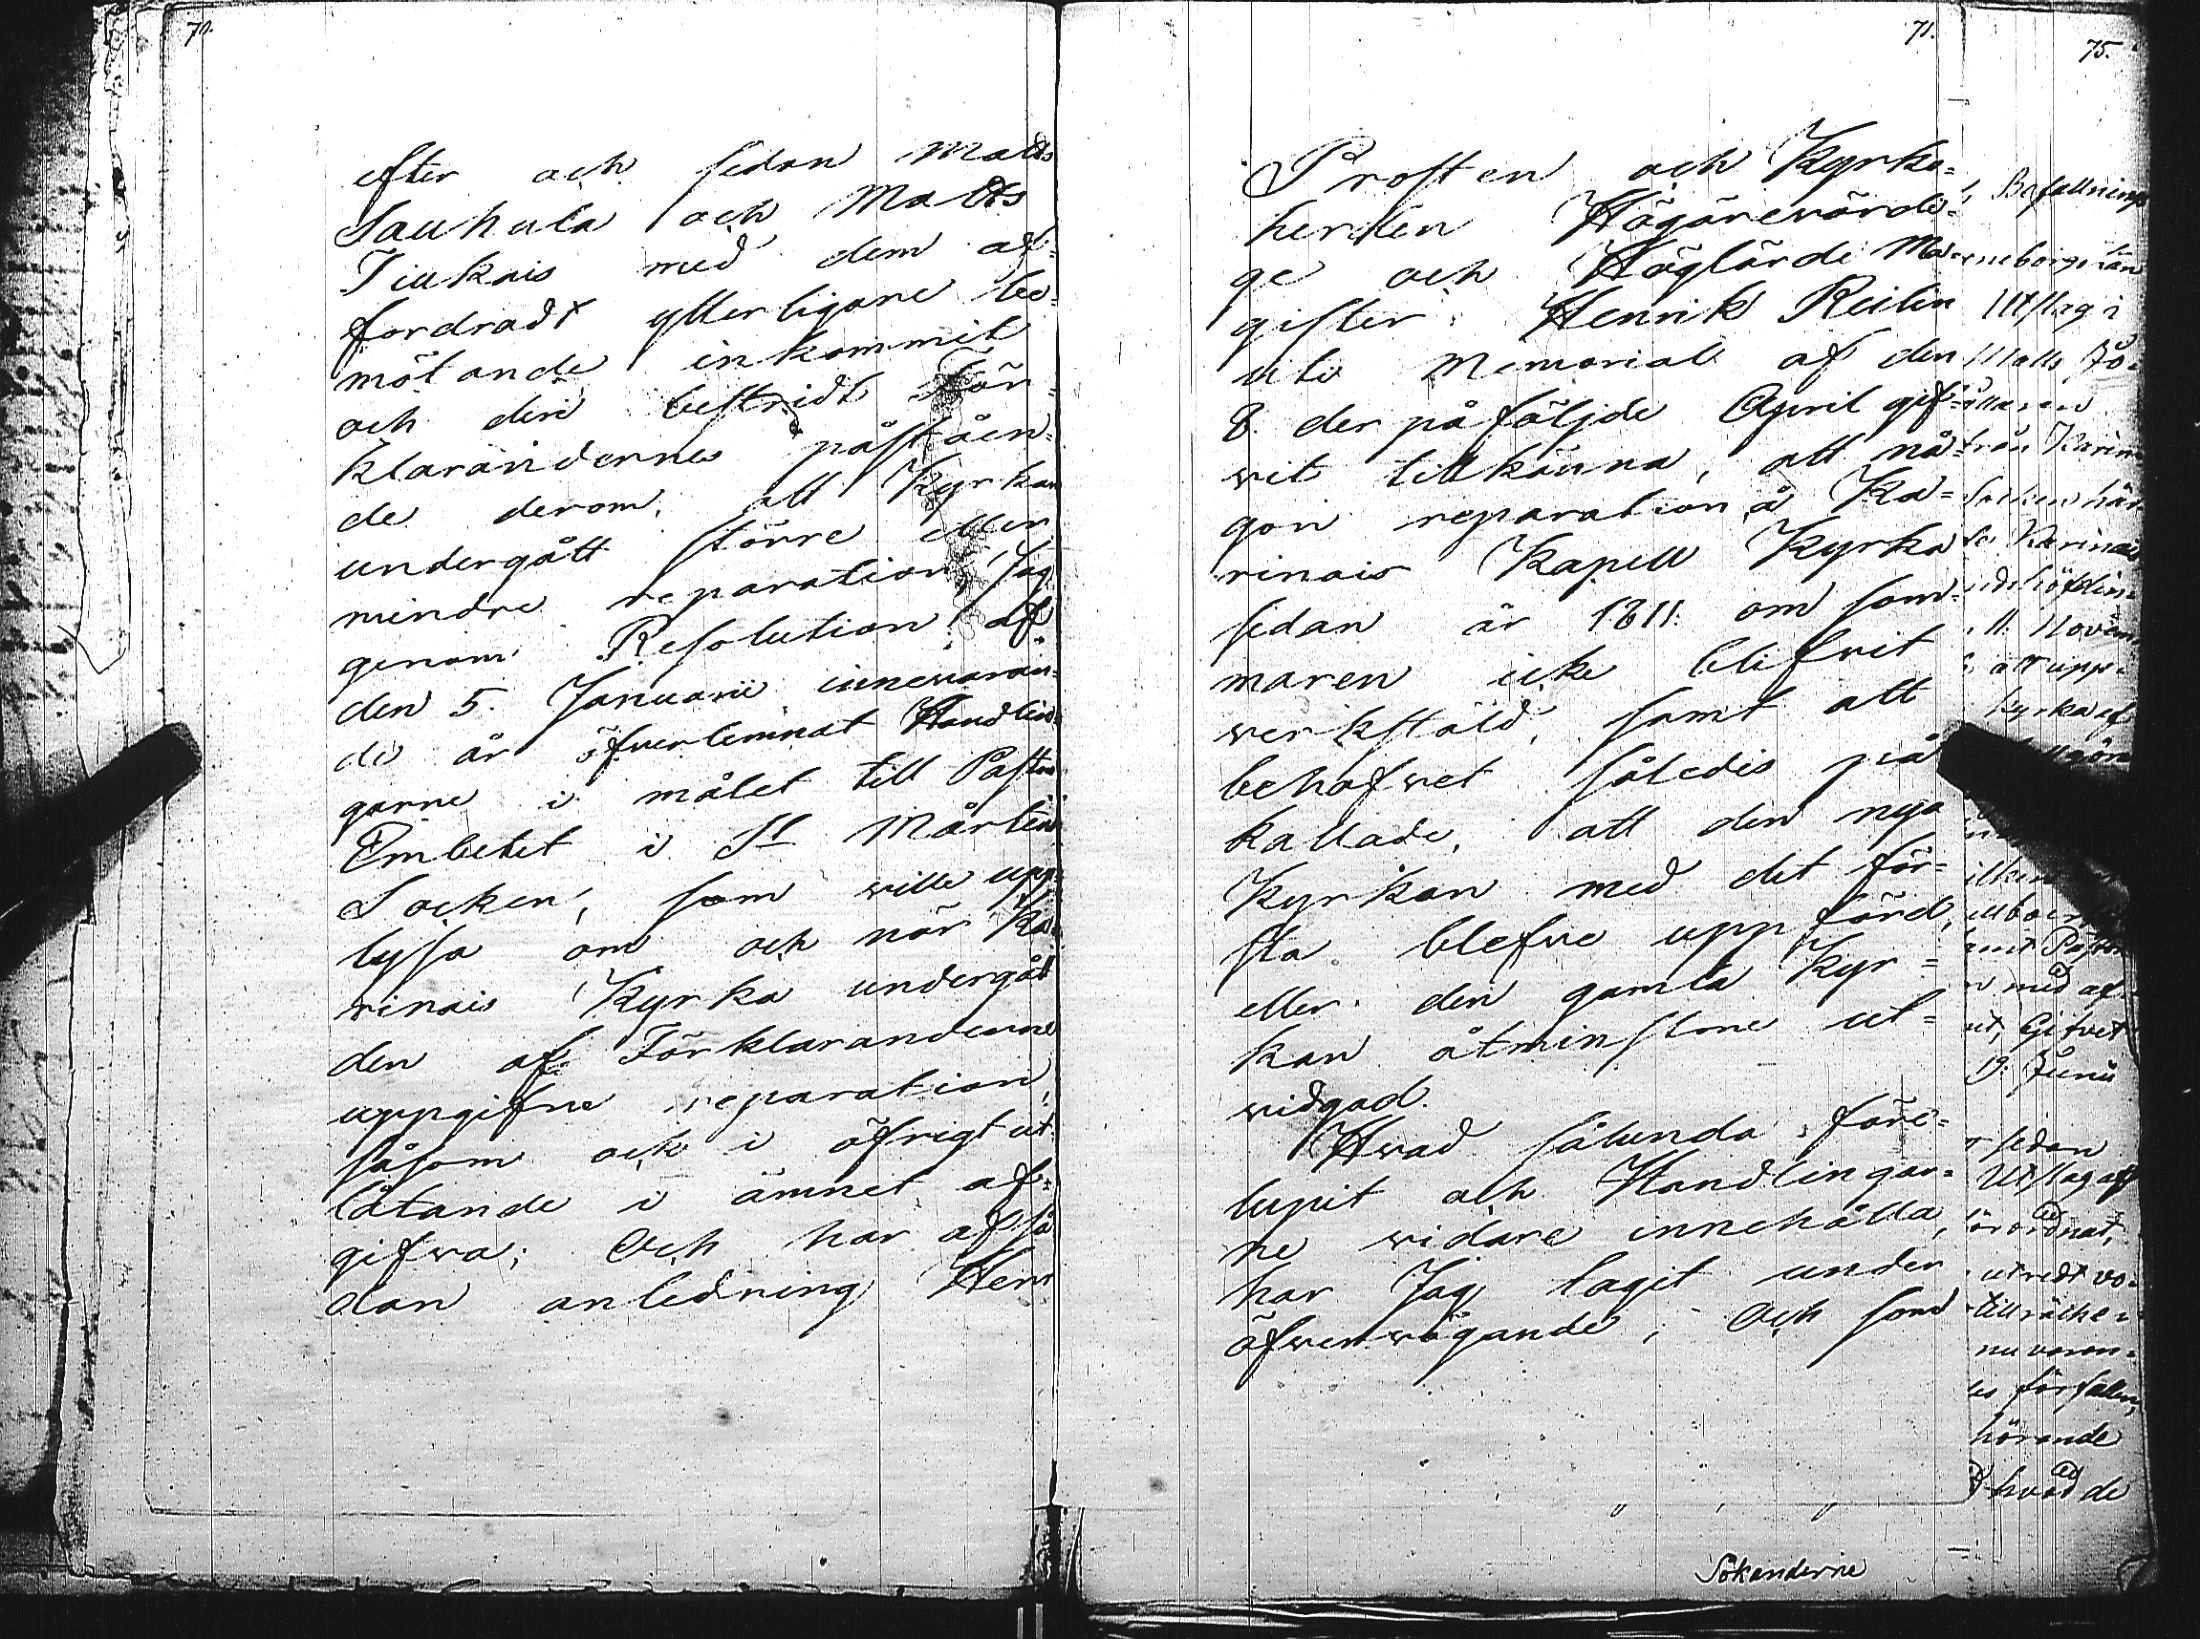 70.
efter och sedan Matts
Sauhula och Matts
Tiukais med dem af=
fordradt ytterligare be=
mötande inkommit
och deri bestridt För=
klaranderne påståen=
de derom, att Kyrkan
undergått större eller
mindre reparation, Jag
genom Resolution af
den 5. Januarii innevaran=
de år öfverlemnat Handlin=
garne i målet till Pastors
Embetet i St Mårtens
Socken, som wille upp=
lysa om och när Ka=
rinais Kyrka undergått
den af Förklaranderne
uppgifne reparation,
såsom ock i öfrigt ut=
låtande i ämnet af=
gifwa; Och har af så
dan anledning Herr
71.
Prosten och Kyrko=
herden Högärevördi=
ge och Höglärde Ma=
gister Henrik Reilin
uti Memorial af den
8. derpåföljde April gif=
wit tillkänna, att nå=
gon reparation å Ka=
rinais Kapell Kyrka
sedan år 1811 om som=
maren icke blifvit
werkstäld, samt att
behofwet således på
kallade, att den nya
Kyrkan med det för=
sta blefve uppförd,
eller den gamla Kyr=
kan åtminstone ut=
widgad.
Hvad sålunda före=
lupit och Handlingar=
ne widare innehålla,
har Jag tagit under
öfwerwägande; Och som
Sökanderne
75.
Befallnings
neborgs län
Utslag i
Matts Jo=
från Karin
Socken här
Karinais
11. Novem
att upp=
kyrka af
amt Pastor
med af
ut, Gifvet
19. Junii
sedan
Utslag af
förordnat,
utredt vo=
tillräcke=
nuvaran=
förfallen,
hörande
hvad de